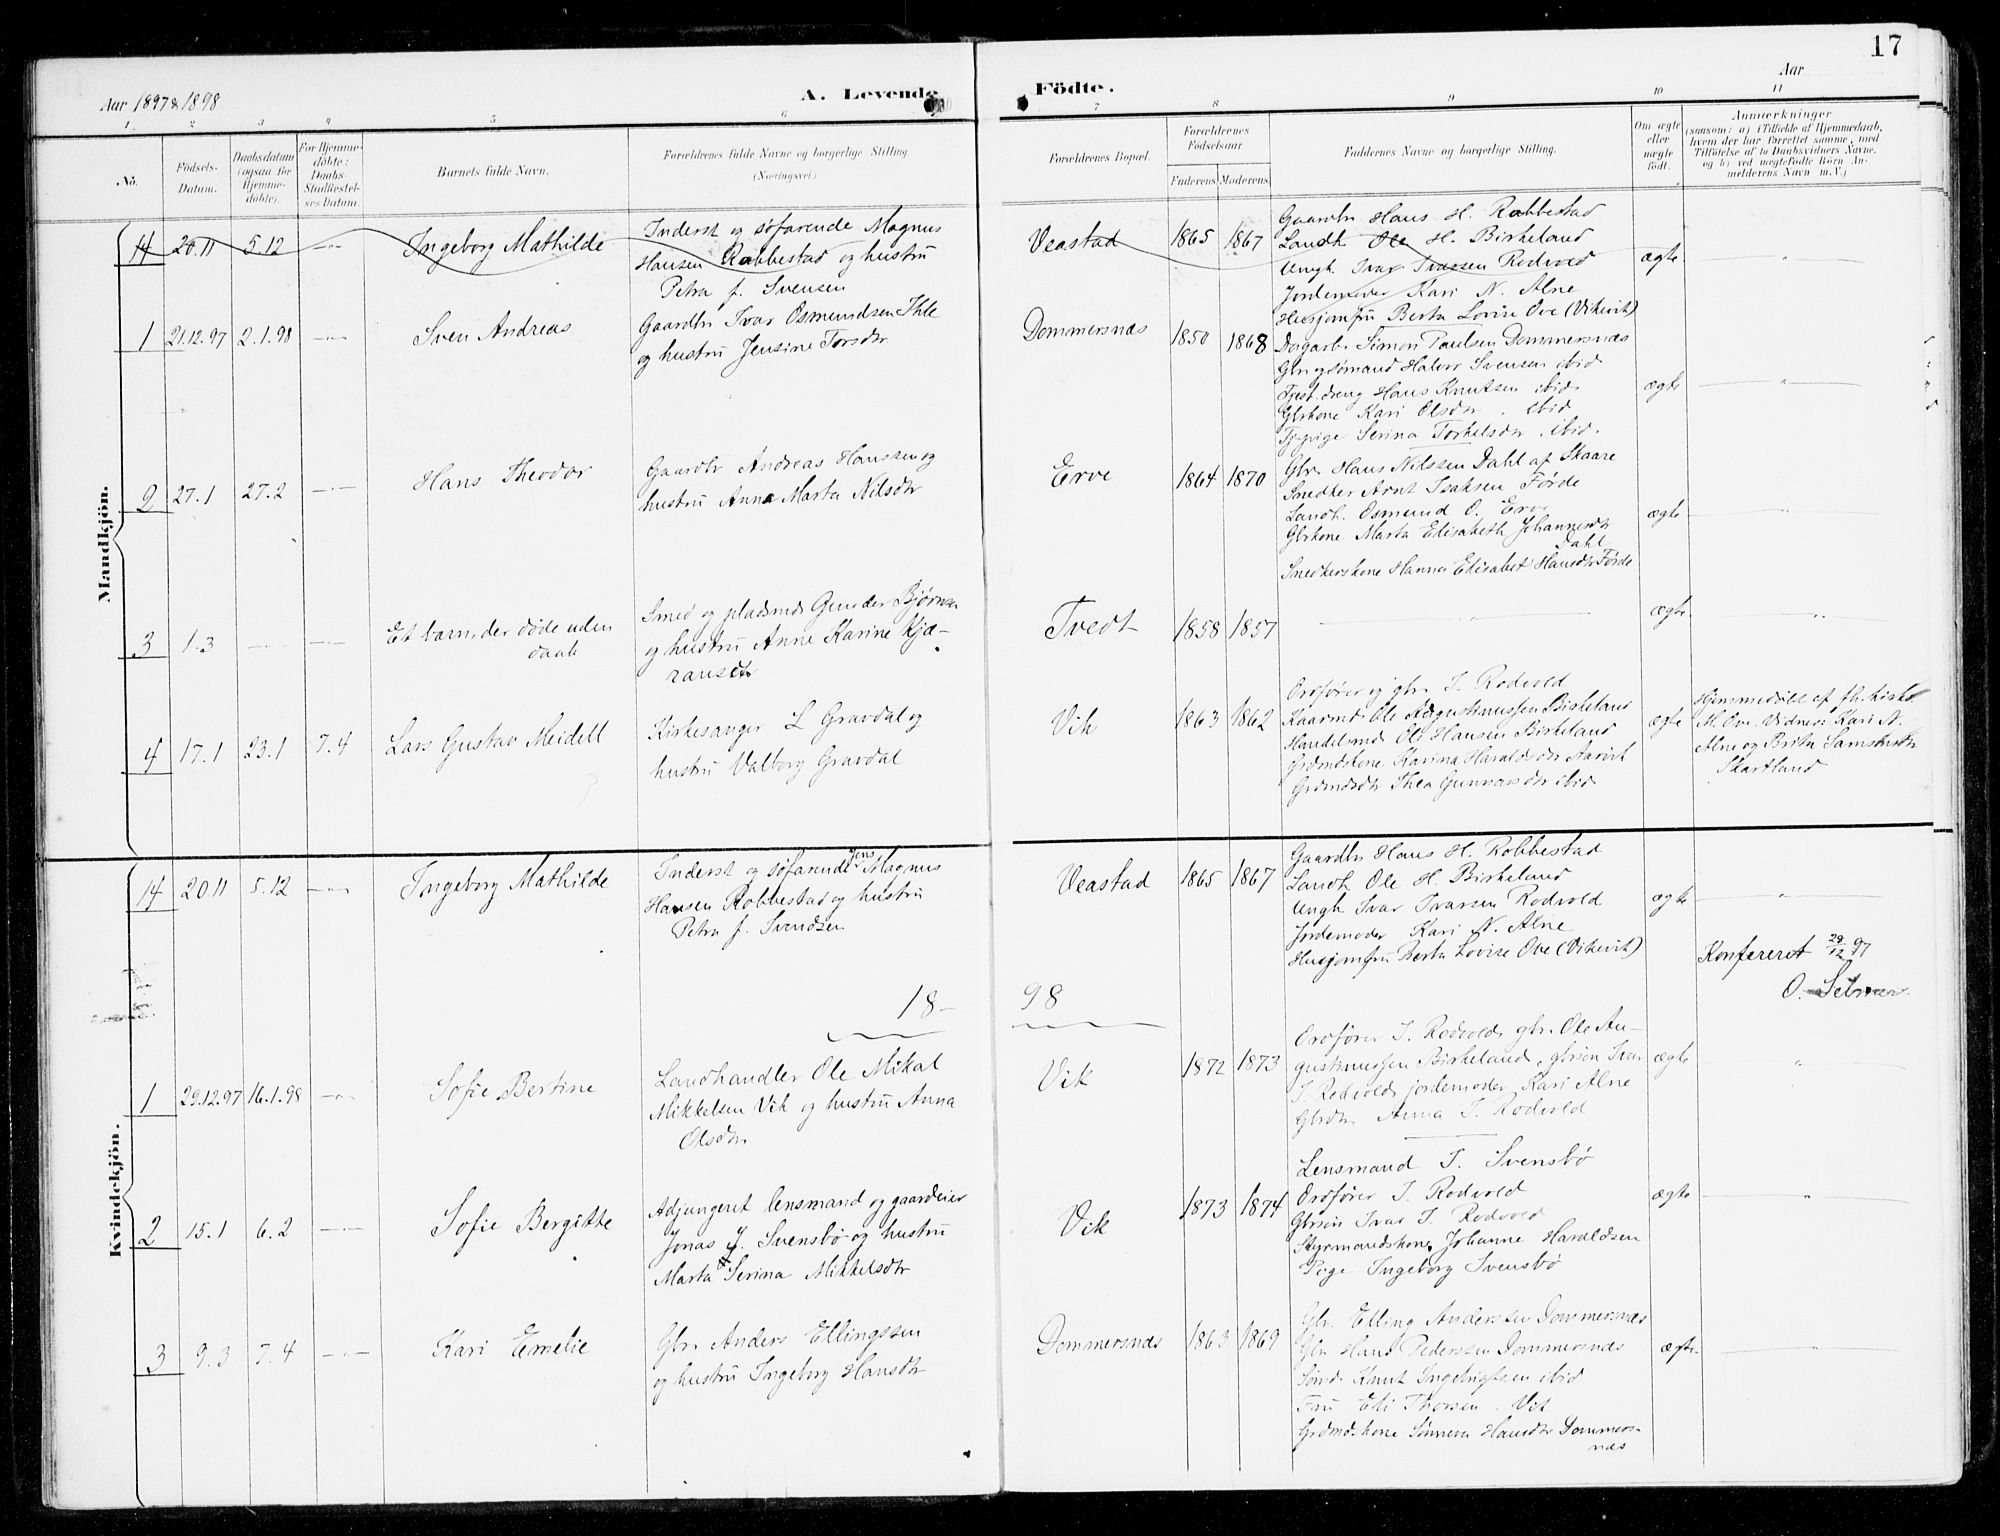 17
Aar 1897 & 1898
A. Levende
Födte.
Aar
1 2 3 4 5 6 7 8 9 10 11
No.
Födsels-
Datum.
Daabsdatum
(ogsaa for
Hjemme-
döbte).
For Hjemme-
döbte:
Daabs-
Stadfæstel-
ses Datum.
Barnets fulde Navn.
Forældrenes fulde Navne og borgerlige Stilling
(Næringsvei.)
Forældrenes Bopæl.
Forældrenes
Födselsaar.
Faderens Moderens
Faddernes Navne og borgerlige Stilling.
Om ægte
eller
uægte
født.
Anmærkninger
(saasom: a) i Tilfælde af Hjemmedaab,
hvem der har forrettet samme, med
Tilföielse af to Daabsvidners Navne,
og b) ved uægtefödte Börn An-
melderens Navn m. V.)
Mandkjön.
14 20.11 5.12 Ingeborg Mathilde
Inderst og søfarende Magnus
Hansen Robbestad og hustru
Petra f. Svensen
Veastad 1865 1867
Gaardbr Hans H. Robbestad
Landh. Ole H. Birkeland
Ungk. Ivar Ivarsen Rodvold
Jordemoder Kari N. Alne
Husjomfru Berta Lovise Ove (Vikevik)
ægte
1 21.12.97 2.1.98 Sven Andreas
Gaardbr Ivar Osmundsen Ihle
og hustru Jensine Torsdtr
Dommersnæs 1850 1868
Dagarb. Simon Paulsen Dommersnæs
Gbr og sømand Halvor Svensen ibid
Tjest.dreng Hans Knutsen ibid.
Gbrkone Kari Olsdtr. ibid
Tj.pige Serina Torkelsdtr. ibid.
ægte
2 27.1 27.2 Hans Theodor
Gaardbr Andreas Hanssen og
hustru Anna Marta Nilsdtr
Erve 1864 1870
Gbr. Hans Nilssen Dahl af Skaare
Snedker Arnt Isaksen Førde
Landh. Osmund O. Erve
Gbrkone Marta Elisabeth Johannesdtr
Dahl
Snedkerskone Hanna Elisabet Hansdtr Førde
ægte
3 1.3 Et barn, der døde uden
daab
Smed og pladsmd Gunder Bjørnsen
og hustru Anne Karine Kjæ-
ransdtr
Tvedt 1858 1857 ægte
4 17.1 23.1 7.4 Lars Gustav Meidell
Kirkesanger L Gravdal og
hustru Valborg Gravdal
Vik 1863 1862
Ordfører og gbr. I. Rodvold
Kaarmd. Ole Augustinussen Birkeland
Handelsmd Ole Hansen Birkeland
Grdmdskone Karina Haraldsdtr Aarvik
Grdmdsdtr Thea Gunnarsdtr ibid
ægte
Hjemmedøbt af fh. kirkes.
M. Ove. Vidner: Kari N.
Alne og Brita Samsonsdtr
Skartland
Kvindekjön.
14 20.11 5.12 Ingeborg Mathilde
Inderst og søfarende Jens Magnus
Hansen Robbestad og hustru
Petra f. Svendsen
Veastad 1865 1867
Gaardbr Hans H. Robbestad
Landh. Ole H. Birkeland
Ungk Ivar Ivarsen Rodvold
Jordemoder Kari N. Alne
Husjomfru Berta Lovise Ove (Vikevik)
ægte
Konfereret 29/12 97
O. Selmer
18– 98
1 29.12.97 16.1.98 Sofie Bertine
Landhandler Ole Mikal
Mikkelsen Vik og hustru Anna
Olsdtr
Vik 1872 1873
Ordfører I. Rodvold, gbr. Ole Au-
gustinussen Birkeland, gbrsøn Ivar
I. Rodvold, jordemoder Kari Alne
Gbrdtr Anna I. Rodvold
ægte
2 15.1 6.2 Sofie Bergitte
Adjungeret lensmand og gaardeier
Jonas J. Svensbø og hustru
Marta Serina Mikkelsdtr
Vik 1873 1874
Lensmand I. Svensbø
Ordfører I. Rodvold
Gbrsøn Ivar I. Rodvold
Styrmandskone Johanne Haraldsen
Pige Ingeborg Svensbø
ægte
3 9.3 7.4 Kari Emelie
Gbr. Anders Ellingssen
og hustru Ingeborg Hansdtr
Dommersnæs 1863 1869
Gbr. Elling Anderssen Dommersnæs
Gbr Hans Pederssen Dommersnæs
Sømd Knut Ingebrigtsen ibid
Fru Eli Thorsen. Vik
Grdmdskone Sinneva Hansdtr Dommers-
næs
ægte